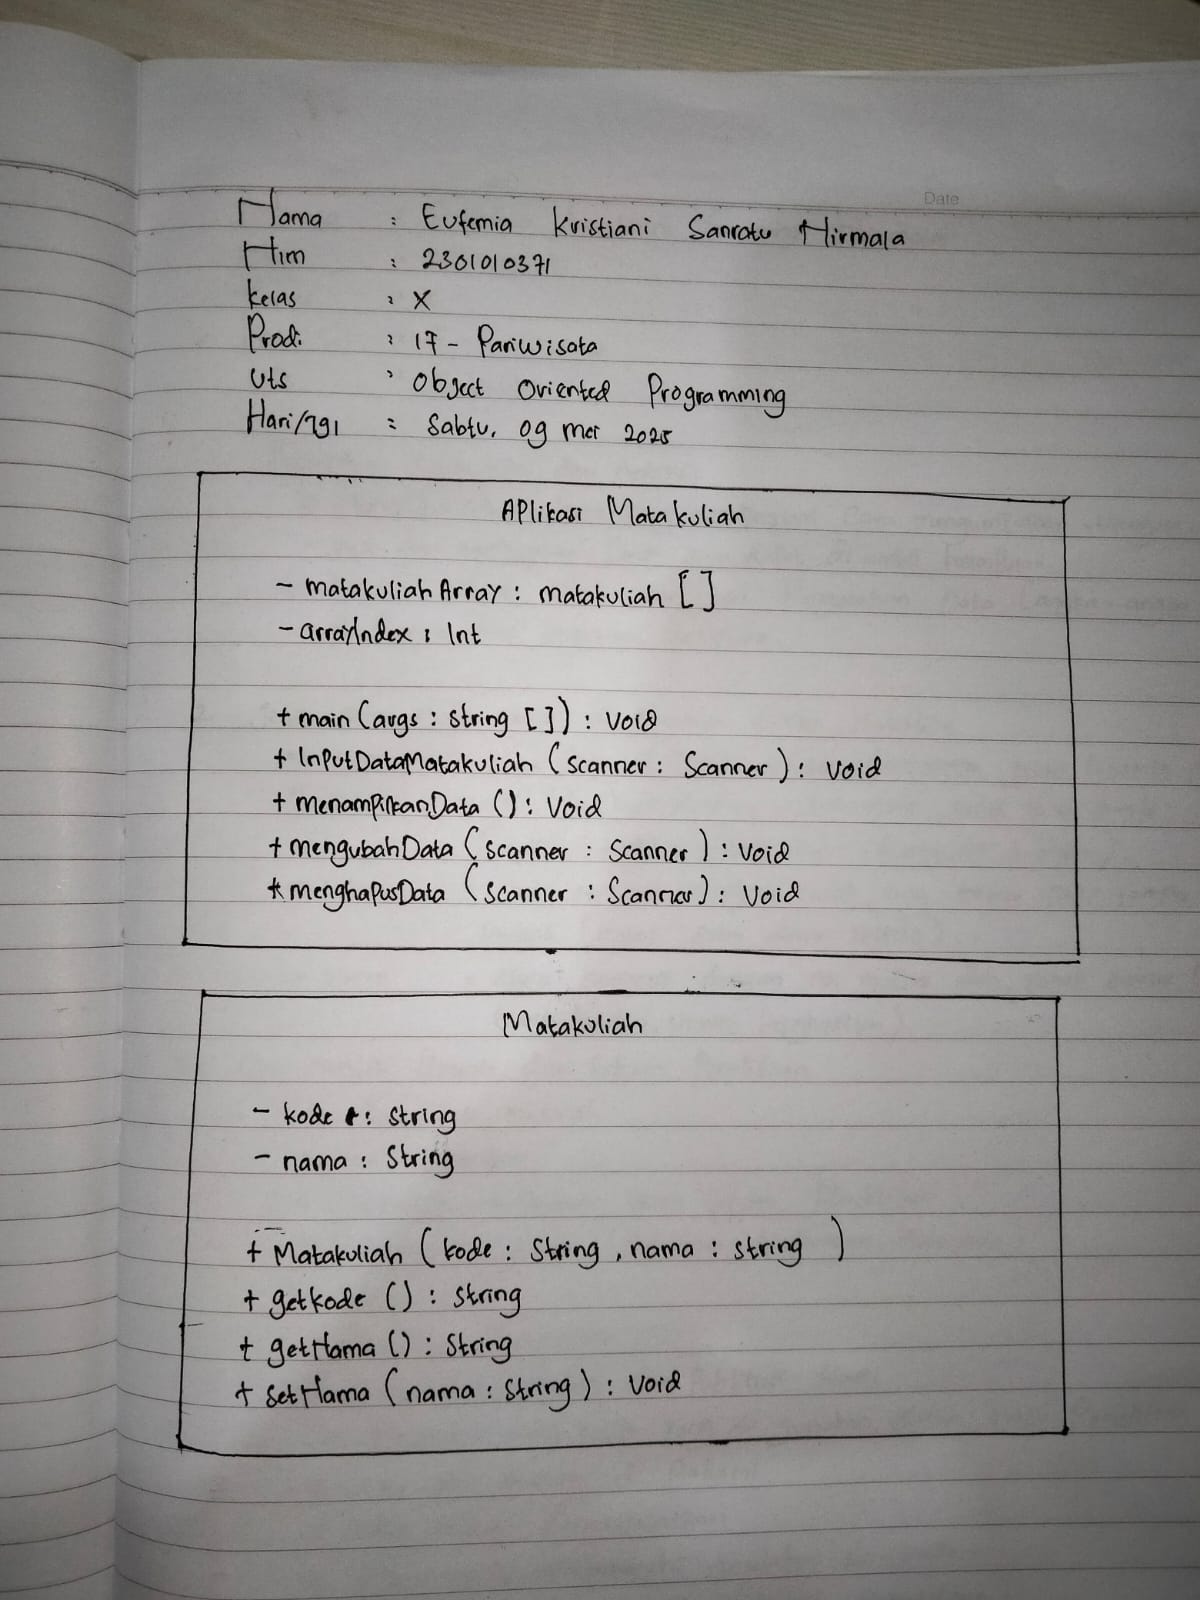 Date
Nama : Eufemia Kristiani Sanratu Nirmala
Nim : 2301010371
Kelas : X
Prodi : 17 - Pariwisata
Uts : Object Oriented Programming
Hari/Tgl : Sabtu, 09 mei 2025
APlikasi Matakuliah
- matakuliahArray : matakuliah []
- arrayIndex : Int
+ main (args : String []) : Void
+ InputDataMatakuliah (scanner : Scanner) : Void
+ menampilkanData () : Void
+ mengubahData (scanner : Scanner) : Void
+ menghapusData (scanner : Scanner) : Void
Matakuliah
- kode : String
- nama : String
+ Matakuliah (kode : String, nama : String )
+ getkode () : String
+ getNama () : String
+ SetNama (nama : String) : Void